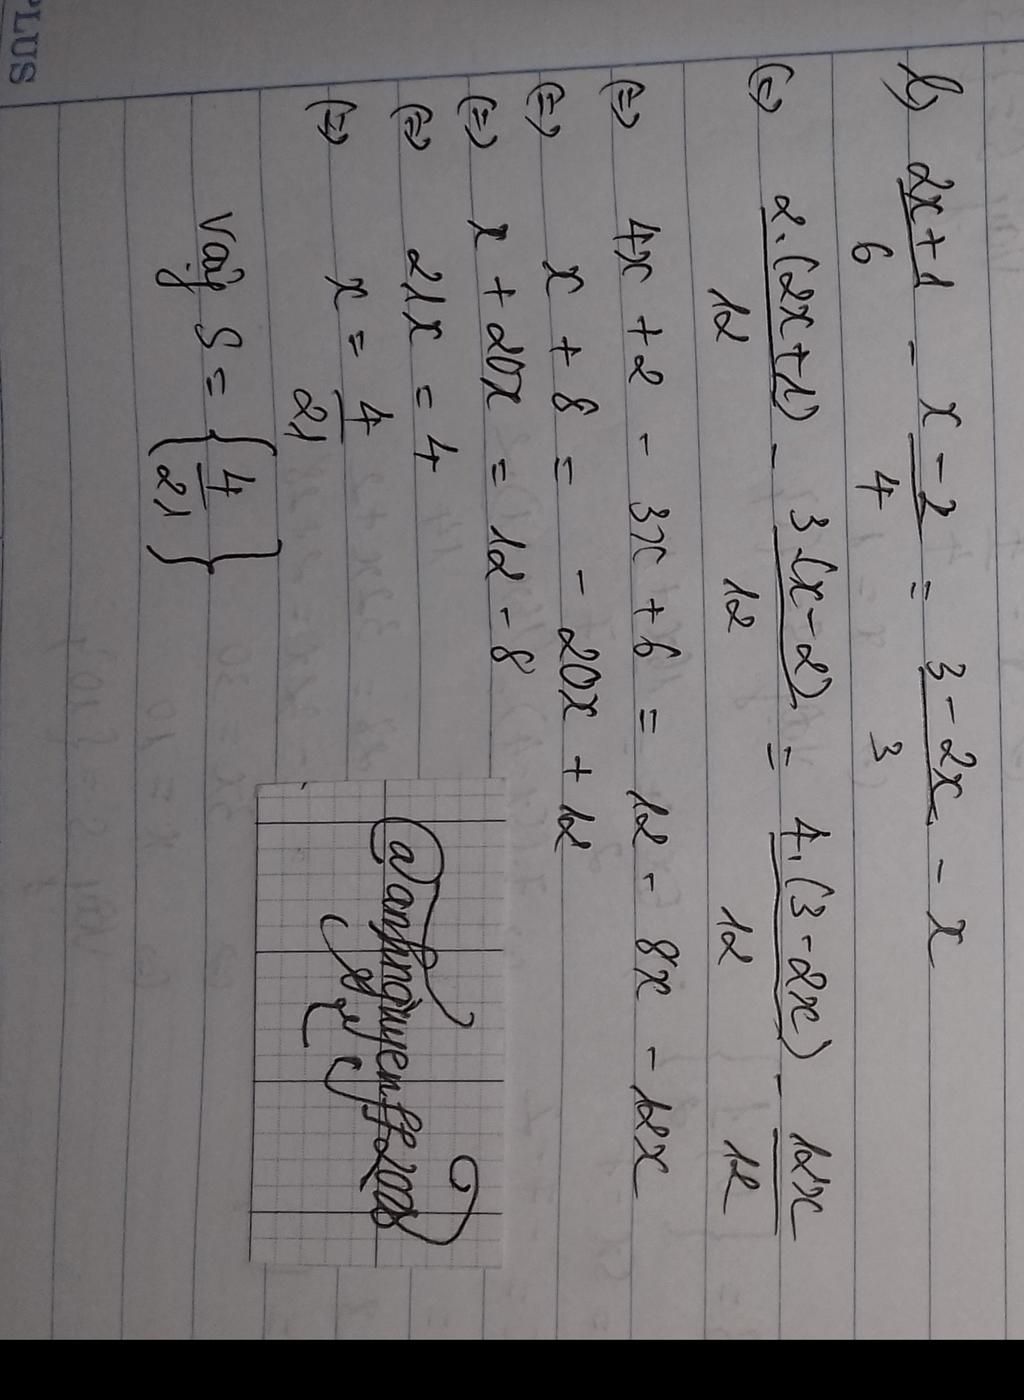 b) 2x+1/6 - x-2/4 = 3-2x/3 - x
(=) 2.(2x+1)/12 - 3(x-2)/12 = 4.(3-2x)/12 - 12x/12
(=) 4x + 2 - 3x + 6 = 12 - 8x - 12x
(=) x + 8 = - 20x + 12
(=) x + 20x = 12 - 8
(=) 21x = 4
(=) x = 4/21
Vậy S = {4/21}
PLUS